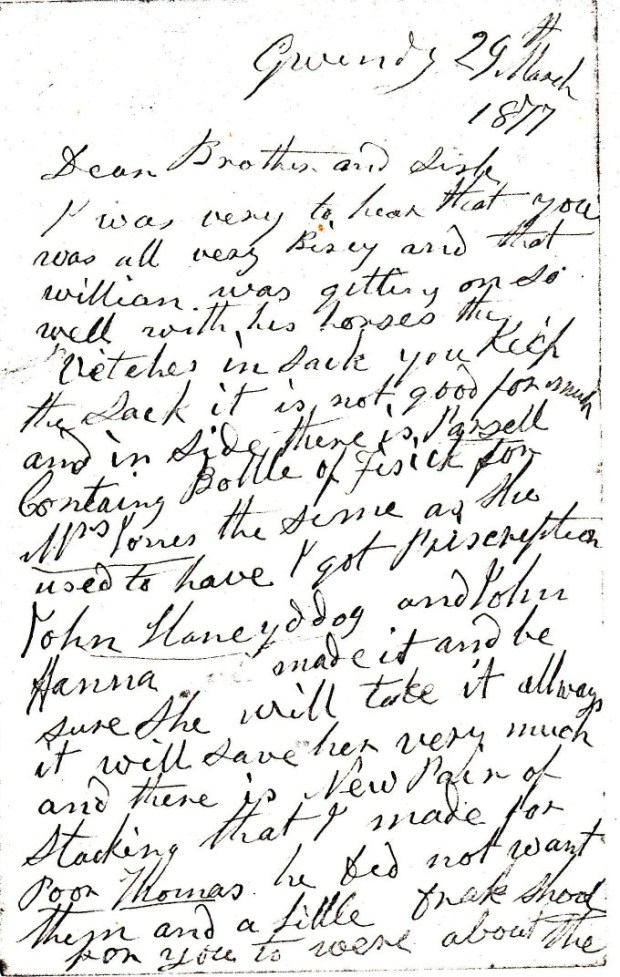 Gwendy 29th
March
1877
Dear Brother and Sister
I was very to hear that you
was all very Bisey and that
willian was gitting on so
well with his horses the
Vetches in sack you Keep
the sack it is not good for much
and in side there is Parsell
Containg Bottle of Fisick for
Mrs Jones the seme as she
used to have I got Priscreption
John Llaneyddog and John
Hanna made it and be
sure she will take it allways
it will save her very much
and there is New Pair of
Stocking that I made for
Poor Thomas he Did not want
them and a little shod
for you to were about the